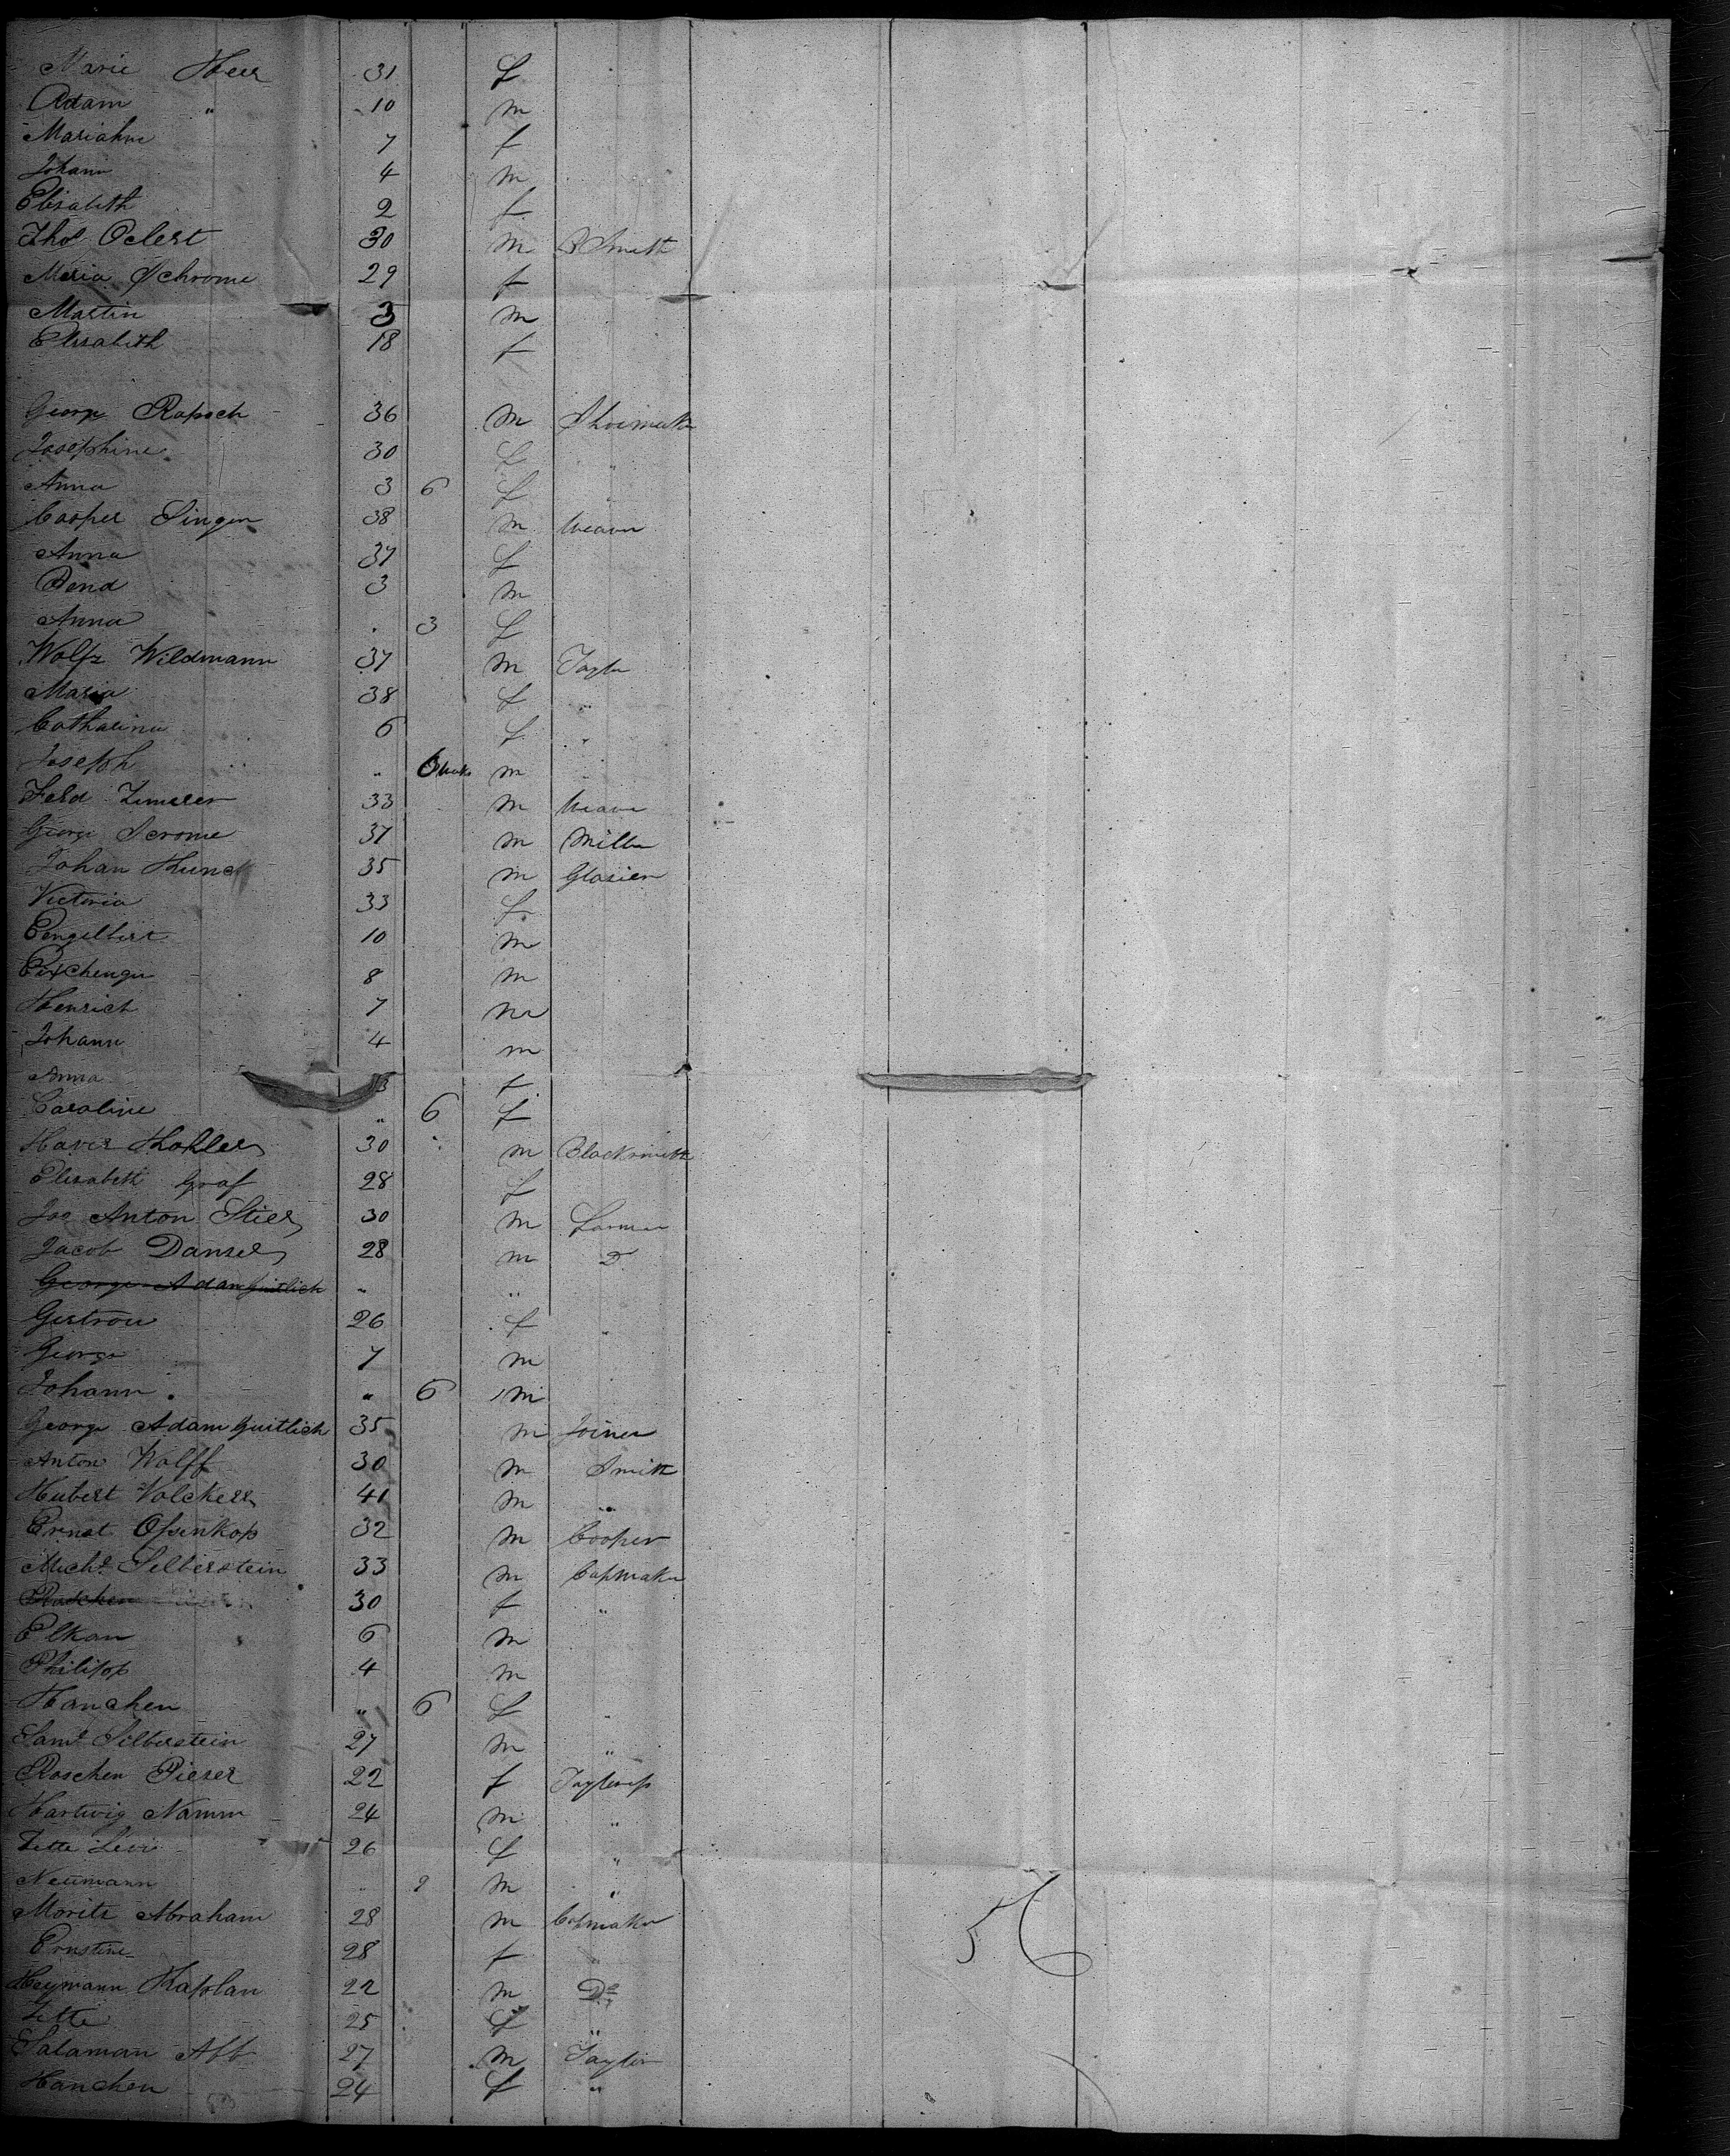 Marie Heer 31 f
Adam " 10 m
Mariahn 7 f
Johann 4 m
Elisabeth 2 f
Thos Oclert 30 m B Smith
Maria Schrome 29 f
Martin 3 m
Elisabeth 18 f
George Rapsch 36 m Shoemaker
Josephine 30 f "
Anna 3 6 f "
Casper Singer 38 m Weaver
Anna 37 f
Bend 3 m
Anna 3 f
Wolfz Wildmann 37 m Taylor
Maria 38 f "
Catharina 6 f "
Joseph " 6 weeks m
Feld 33 m Weaver
George Serome 37 m Miller
Johan 35 m Glasier
Victoria 33 f
Eengelbert 10 m
8 m
Henrich 7 m
Johann 4 m
Anna 3 f
Caroline " 6 f
Haver Kohler 30 m Blacksmith
Elisabeth Graf 28 f
Jos Anton Stier 30 m Farmer
Jacob Danser 28 m D
George Adam Guitlich " "
Gertrou 26 f "
George 7 m
Johann " 6 m
George Adam Guitlich 35 m Joiner
Anton Wolff 30 m Smith
Hubert Volckers 41 m "
Ernst Ofsenkop 32 m Cooper
Michl Selberstein 33 m Capmaker
Roschen 30 f "
Elkan 6 m
Philipp 4 m
Hanchen " 6 f "
Saml Silberstein 27 m "
Roschen Pieser 22 f Tayleress
Hartwig Namm 24 m "
Jette Levi 26 f "
Neumann " 9 m "
Moritz Abraham 28 m Capmaker
Ernstine 28 f "
Heymann Kaplan 22 m Do
Jette 25 f "
Salaman Abb 27 m Taylor
Hanchen 24 f "
56